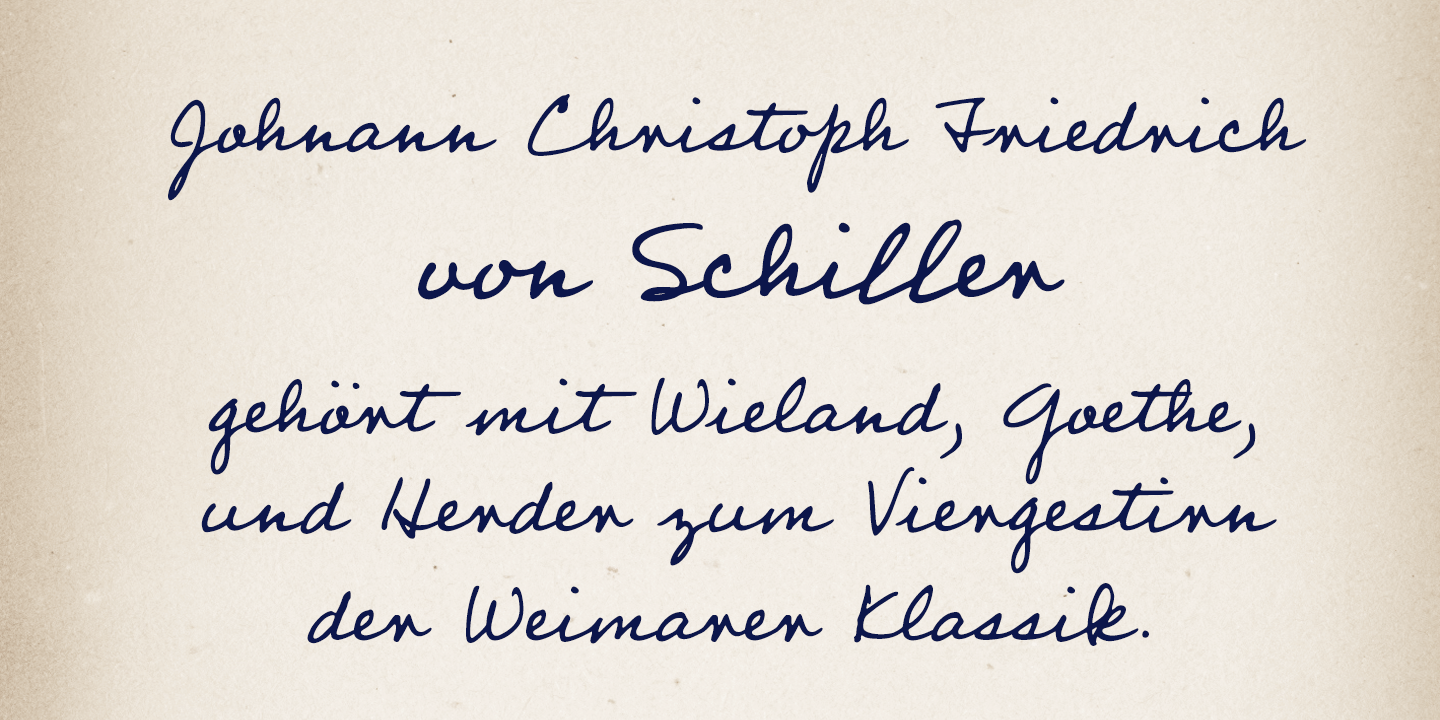 Johann Christoph Friedrich
von Schiller
gehört mit Wieland, Goethe,
und Herder zum Viergestirn
der Weimarer Klassik.